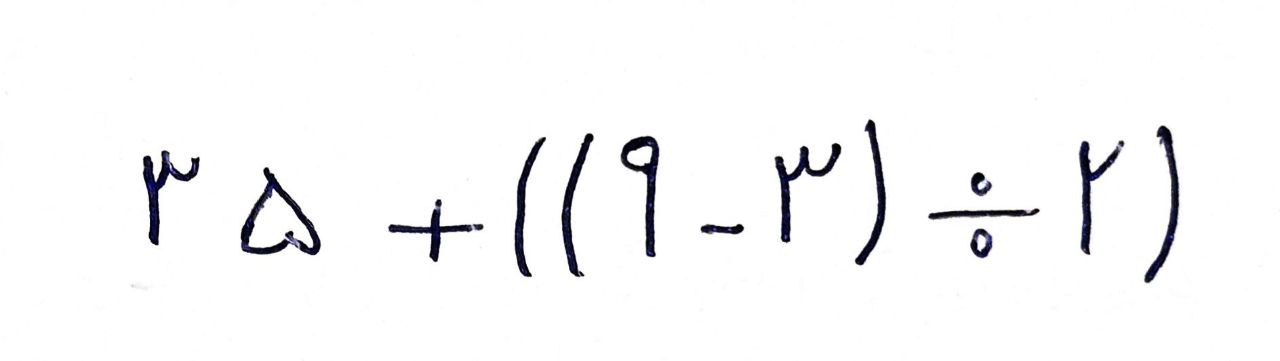 ۳۵ + ((۹ - ۳) ÷ ۲)